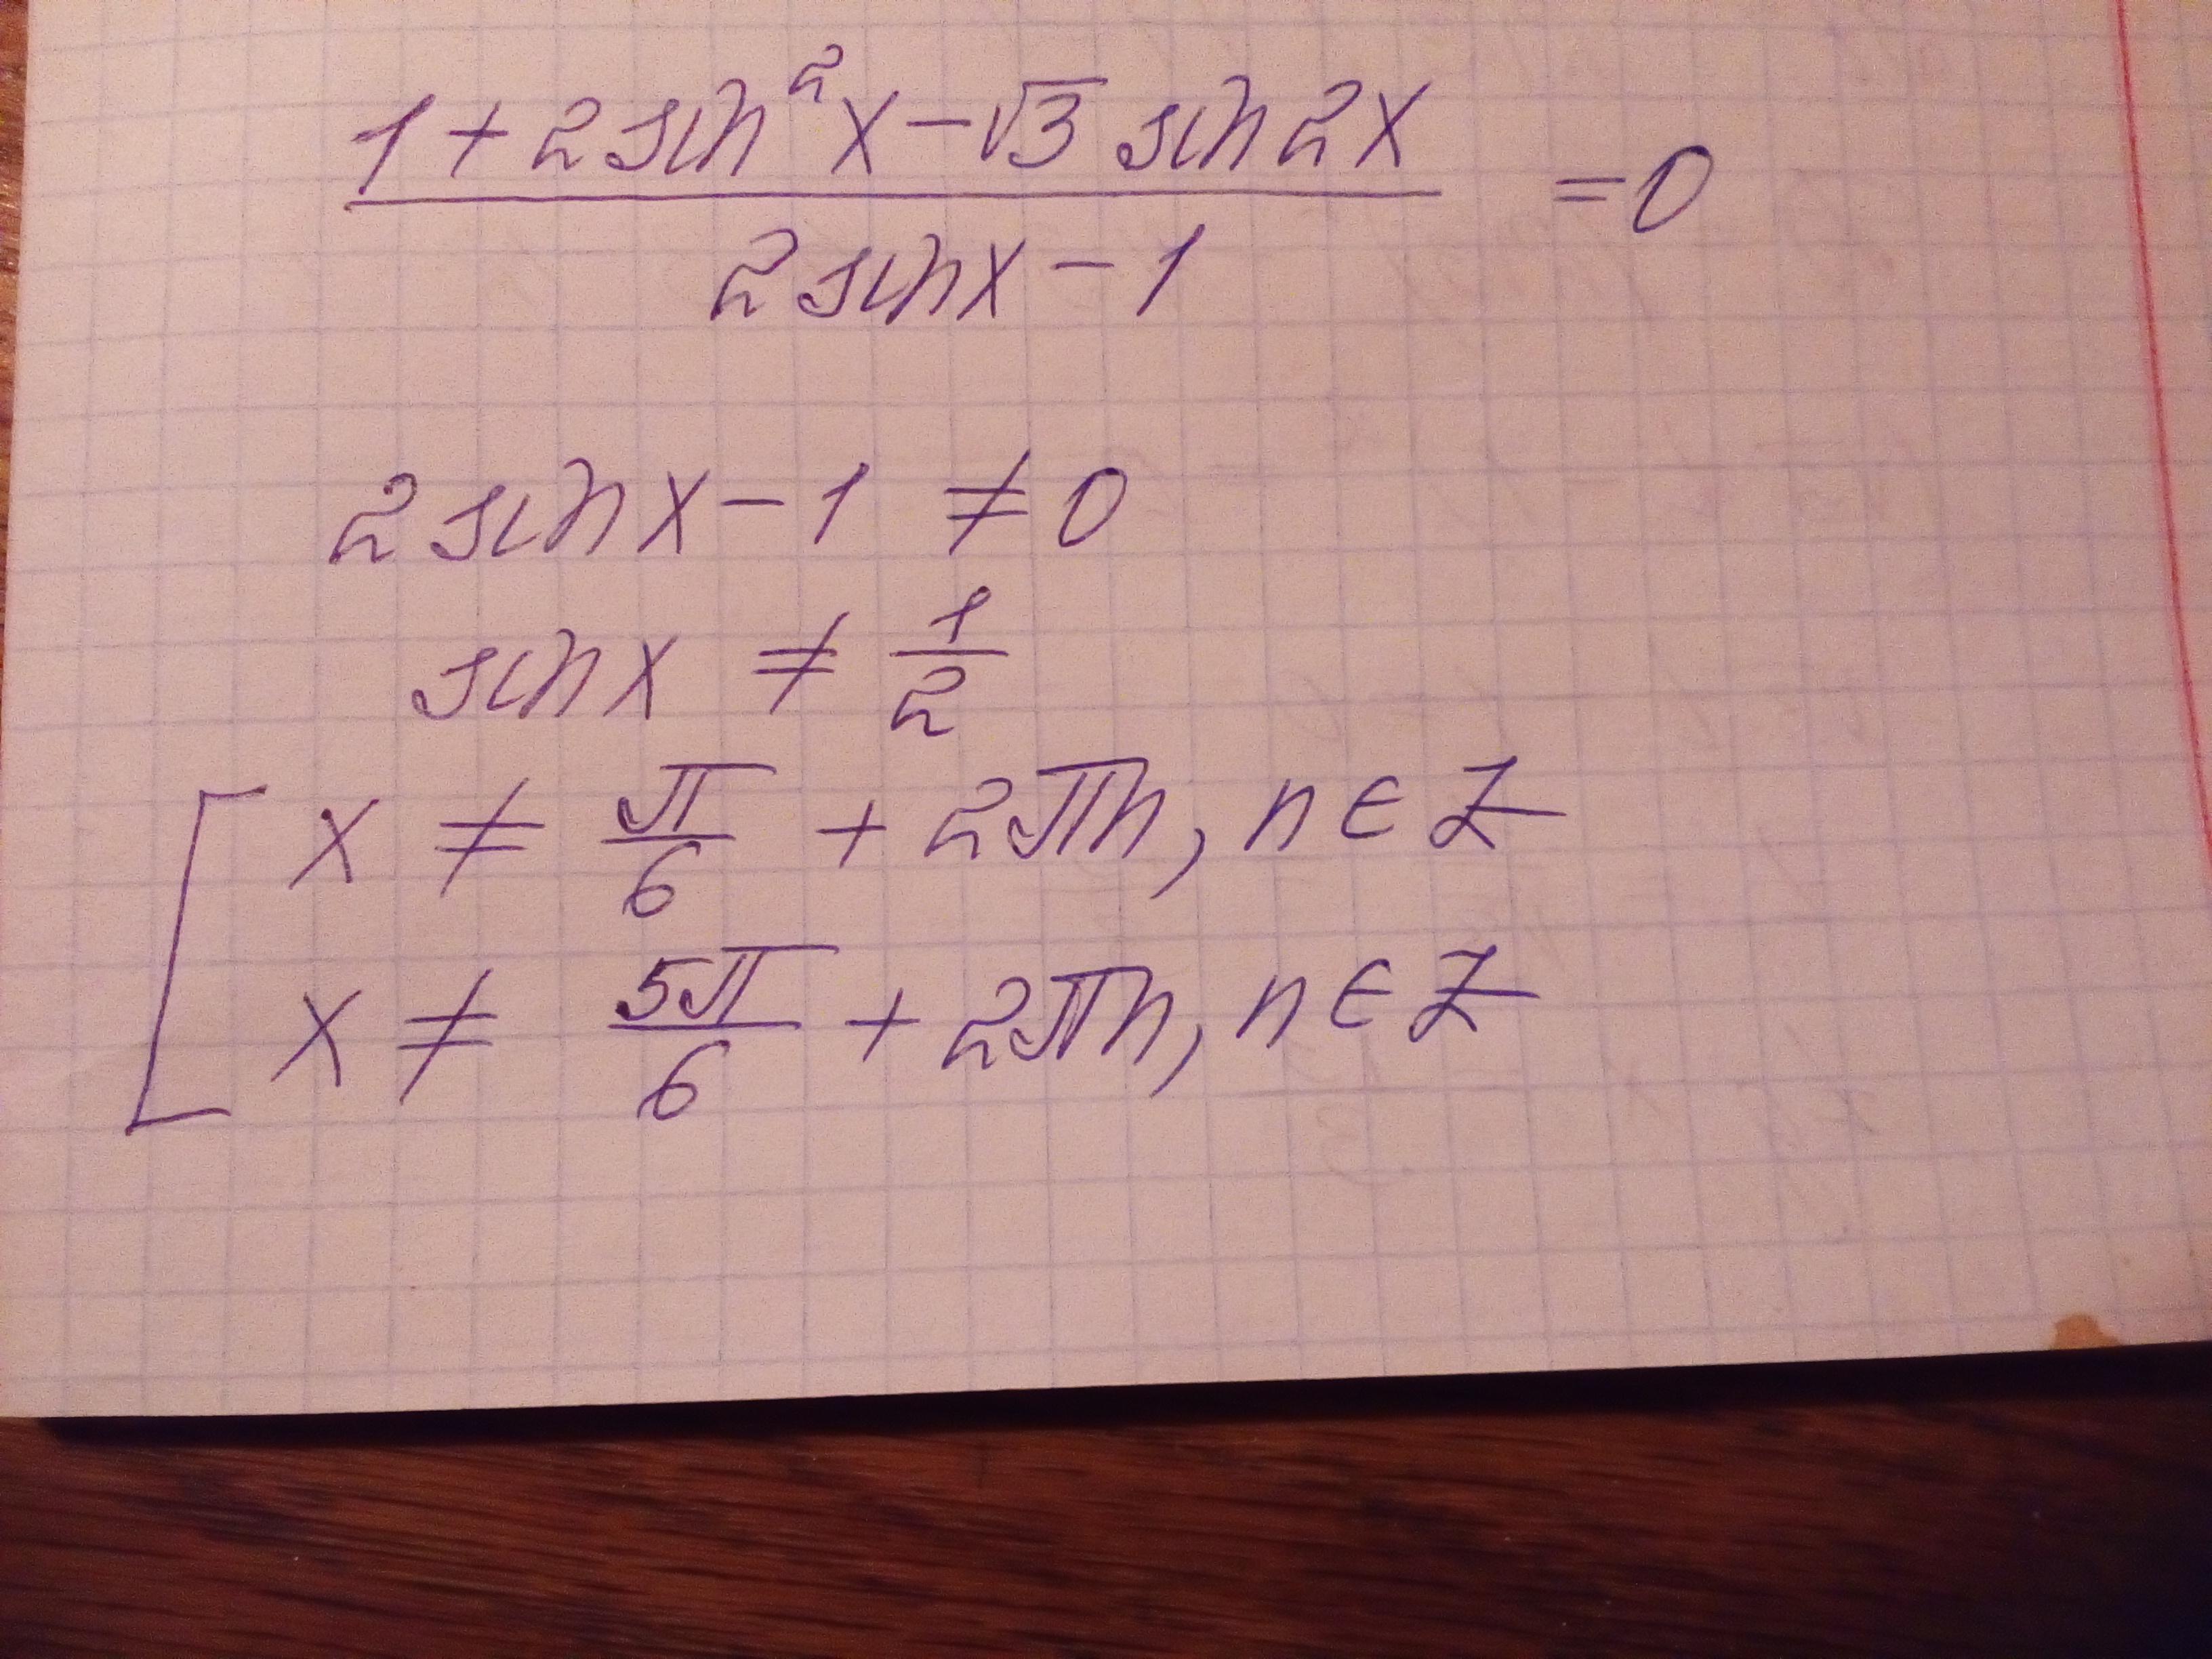 (1 + 2 sin² x − √3 sin 2x) / (2 sin x − 1) = 0
2 sin x − 1 ≠ 0
sin x ≠ 1/2
[ x ≠ π/6 + 2πn, n ∈ Z
x ≠ 5π/6 + 2πn, n ∈ Z